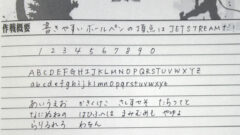 作戦概要 書きやすいボールペンの頂点はJETSTREAMだ!
1 2 3 4 5 6 7 8 9 0
ABCDEFGHIJKLMNOPQRSTUVWXYZ
abcdefghijklmnopqrstuvwxyz
あいうえお かきくけこ さしすせそ たちつてと
なにぬねの はひふへほ まみむめも やゆよ
らりるれろ わをん